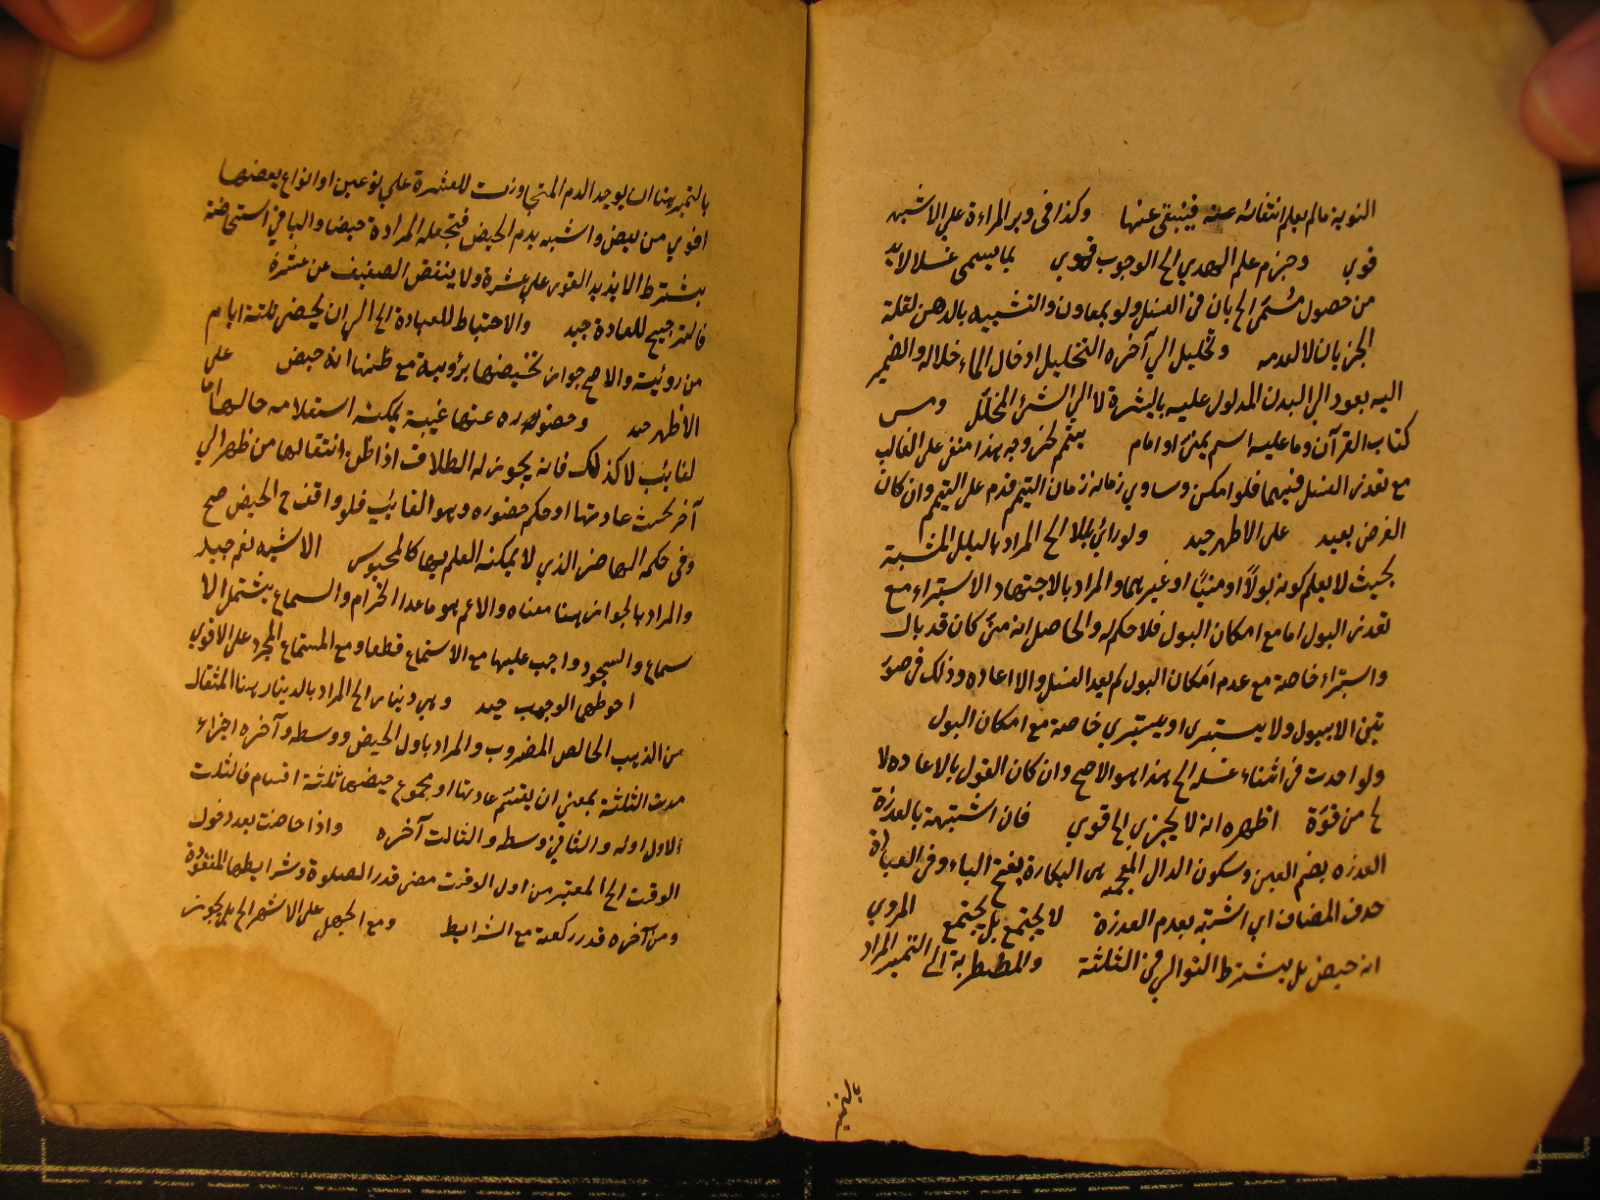 النوبة مالم يعلم انتفائه عنه فينبغي عنها وكذا في وبر المراءة علي الاشبه
قوي وجزم علم الهدي الخ الوجوب قوي بما يسمى غسلا لابد
من حصول مسمى الجريان في الغسل ولو بمعاون والتشبيه بالدهن لقلة
الجريان لا لعدمه وتخليل الي آخره التخليل ادخال الماء خلاله والضمير
اليه يعود الي البدن المدلول عليه بالبشرة لا الي الشئ المخلل ومس
كتاب القرآن وما عليه اسم نبي او امام يتيمم لخروجه هذا مبني على الغالب
مع تعذر الغسل فيهما فلو امكن وساوي زمانه زمان التيمم قدم على التيمم وان كان
الفرض بعيد على الاظهر جيد ولو رائ بللا الخ المراد بالبلل المشتبه
بحيث لا يعلم كونه بولا او منيا او غيرهما والمراد بالاجتهاد الاستبراء مع
تعذر البول اما مع امكان البول فلا حكم له والحاصل انه متى كان قد بال
واستبراء خاصة مع عدم امكان البول لم يعد الغسل والا اعاده وذلك في صور
تبين الا يبول ولا يستبري او يستبري خاصة مع امكان البول
ولو احدث في اثناء غسله الخ هذا هو الاصح وان كان القول بالاعاده لا
يخ من قوة اظهره انه لا يجزي الخ قوي فان اشتبهه بالعذرة
العذره بضم العين وسكون الذال المعجمه هي البكارة بفتح الباء وفي العبارة
حذف المضاف اي اشتبه بدم العذرة لا يجتمع بل يجتمع المروي
انه حيض بل يشترط التوالي في الثلثة والمضطربة الي التميز المراد
بالتميز
بالتميز هنا ان يوجد الدم المتجاوزت للعشرة علي نوعين او انواع بعضها
اقوي من بعض واشبه بدم الحيض فتجعله المرادة حيضا والباقي استحاضة
بشترط الا يزيد القوي علي عشرة ولا ينقص الضعيف عن عشرة
فالترجيح للعادة جيد والاحتياط للعبادة الخ الي ان يحيض ثلثة ايام
من روئية والاصح جواز تحيضها برؤيته مع ظنها انه حيض على
الاظهر جيد وحضوره عنها غيبة يمكنه استعلامه حالها اما
لغائب لا كذلك فانه يجوز له الطلاق اذا ظن انتقالها من ظهر الي
آخر بحسب عادتها او حكم حضوره وهو الغائب فلو واقف ح الحيض صح
وفي حكمه الحاضر الذي لا يمكنه العلم بها كالمحبوس الاشبه نعم جيد
والمراد بالجواز هنا معناه والاعم هو ما عدا الحرام والسماع يشتمل الا
سماع والسجود واجب عليها مع الاستماع قطعا ومع المستماع المجرد على الاقوي
احوطهما الوجوب جيد وهي دينار الخ المراد بالدينار هنا المثقال
من الذهب الخالص المضروب والمراد باول الحيض ووسطه وآخره اجزاء
مدت الثلثة بمعني ان يقسم عادتها او مجموع حيضها ثلاثة اقسام فالثلث
الاول اوله والثاني وسطه والثالث آخره واذا حاضت بعد دخول
الوقت الخ المعتبر من اول الوقت مضي قدر الصلوة وشرايطها المفقودة
ومن آخره قدر ركعة مع الشرايط ومع الجهل على الاشهر الخ بل يجوز